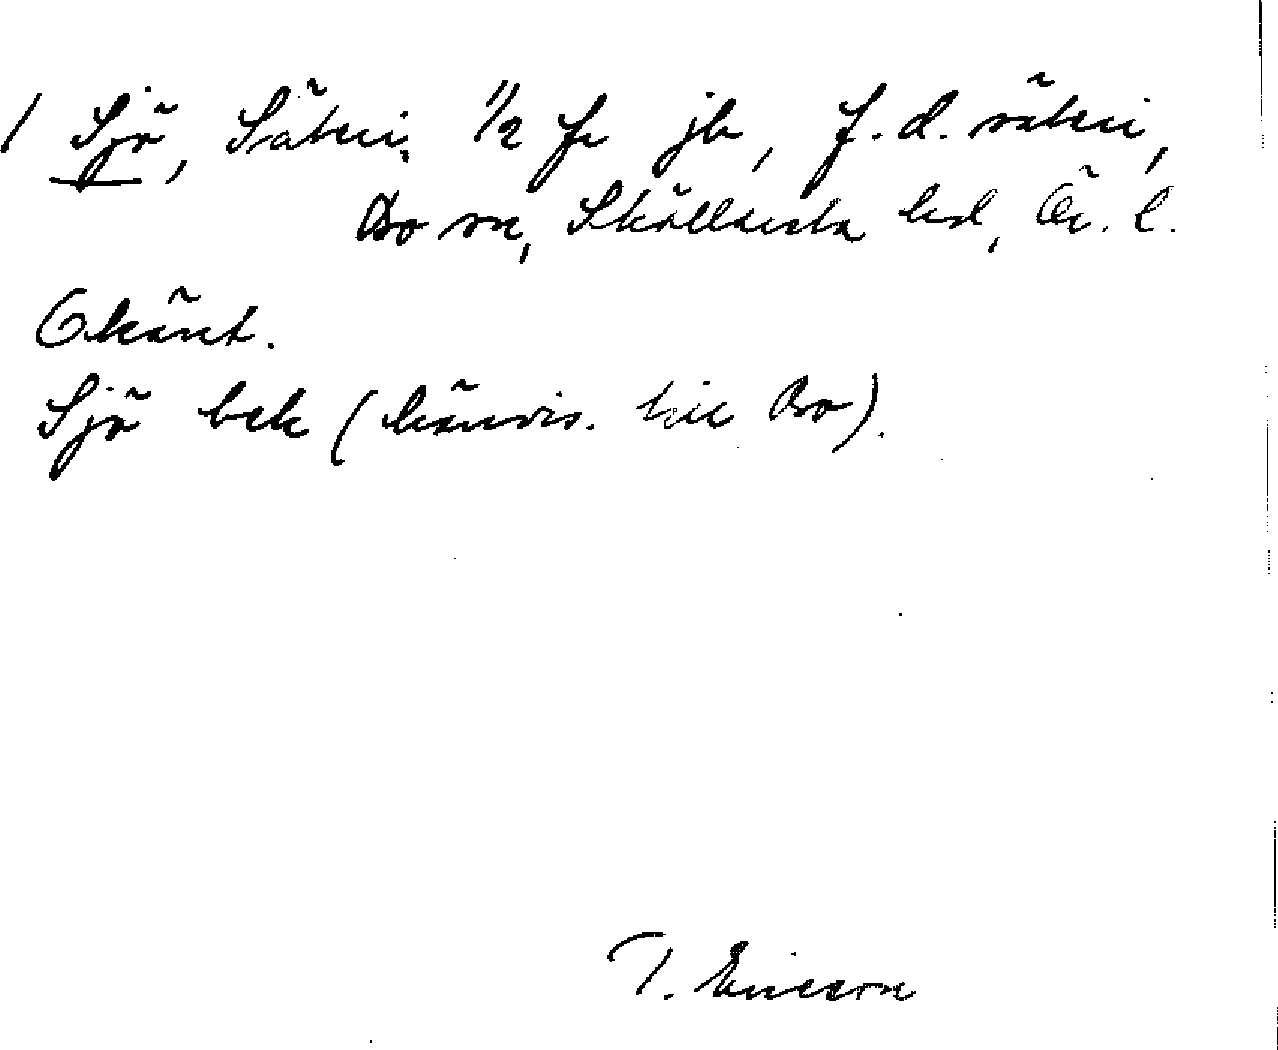 1 Sjö, Säteri, 1/2 fr jb, f.d. säteri,
Bo sn, Sköllersta hd, Ör. l.
Okänt.
Sjö bek (hänvis. till Bo).
T. Ericson